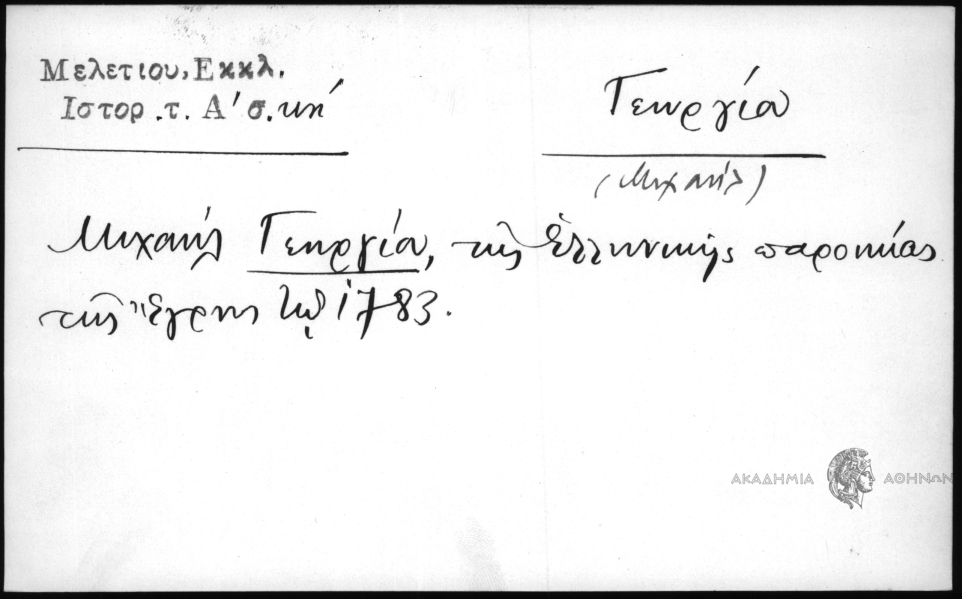 Μελετιου, Εκκλ.
Ιστορ .τ. Α' σ. κή
Γεωργία
(Μιχαήλ)
Μιχαήλ Γεωργία, τῆς Ἑλληνικῆς παροικίας
τῆς Ἔγρης τῷ 1783.
ΑΚΑΔΗΜΙΑ ΑΘΗΝΩΝ